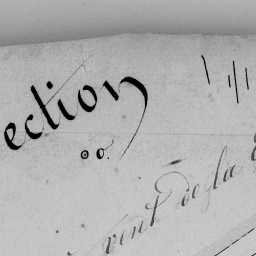 ection
vent de la